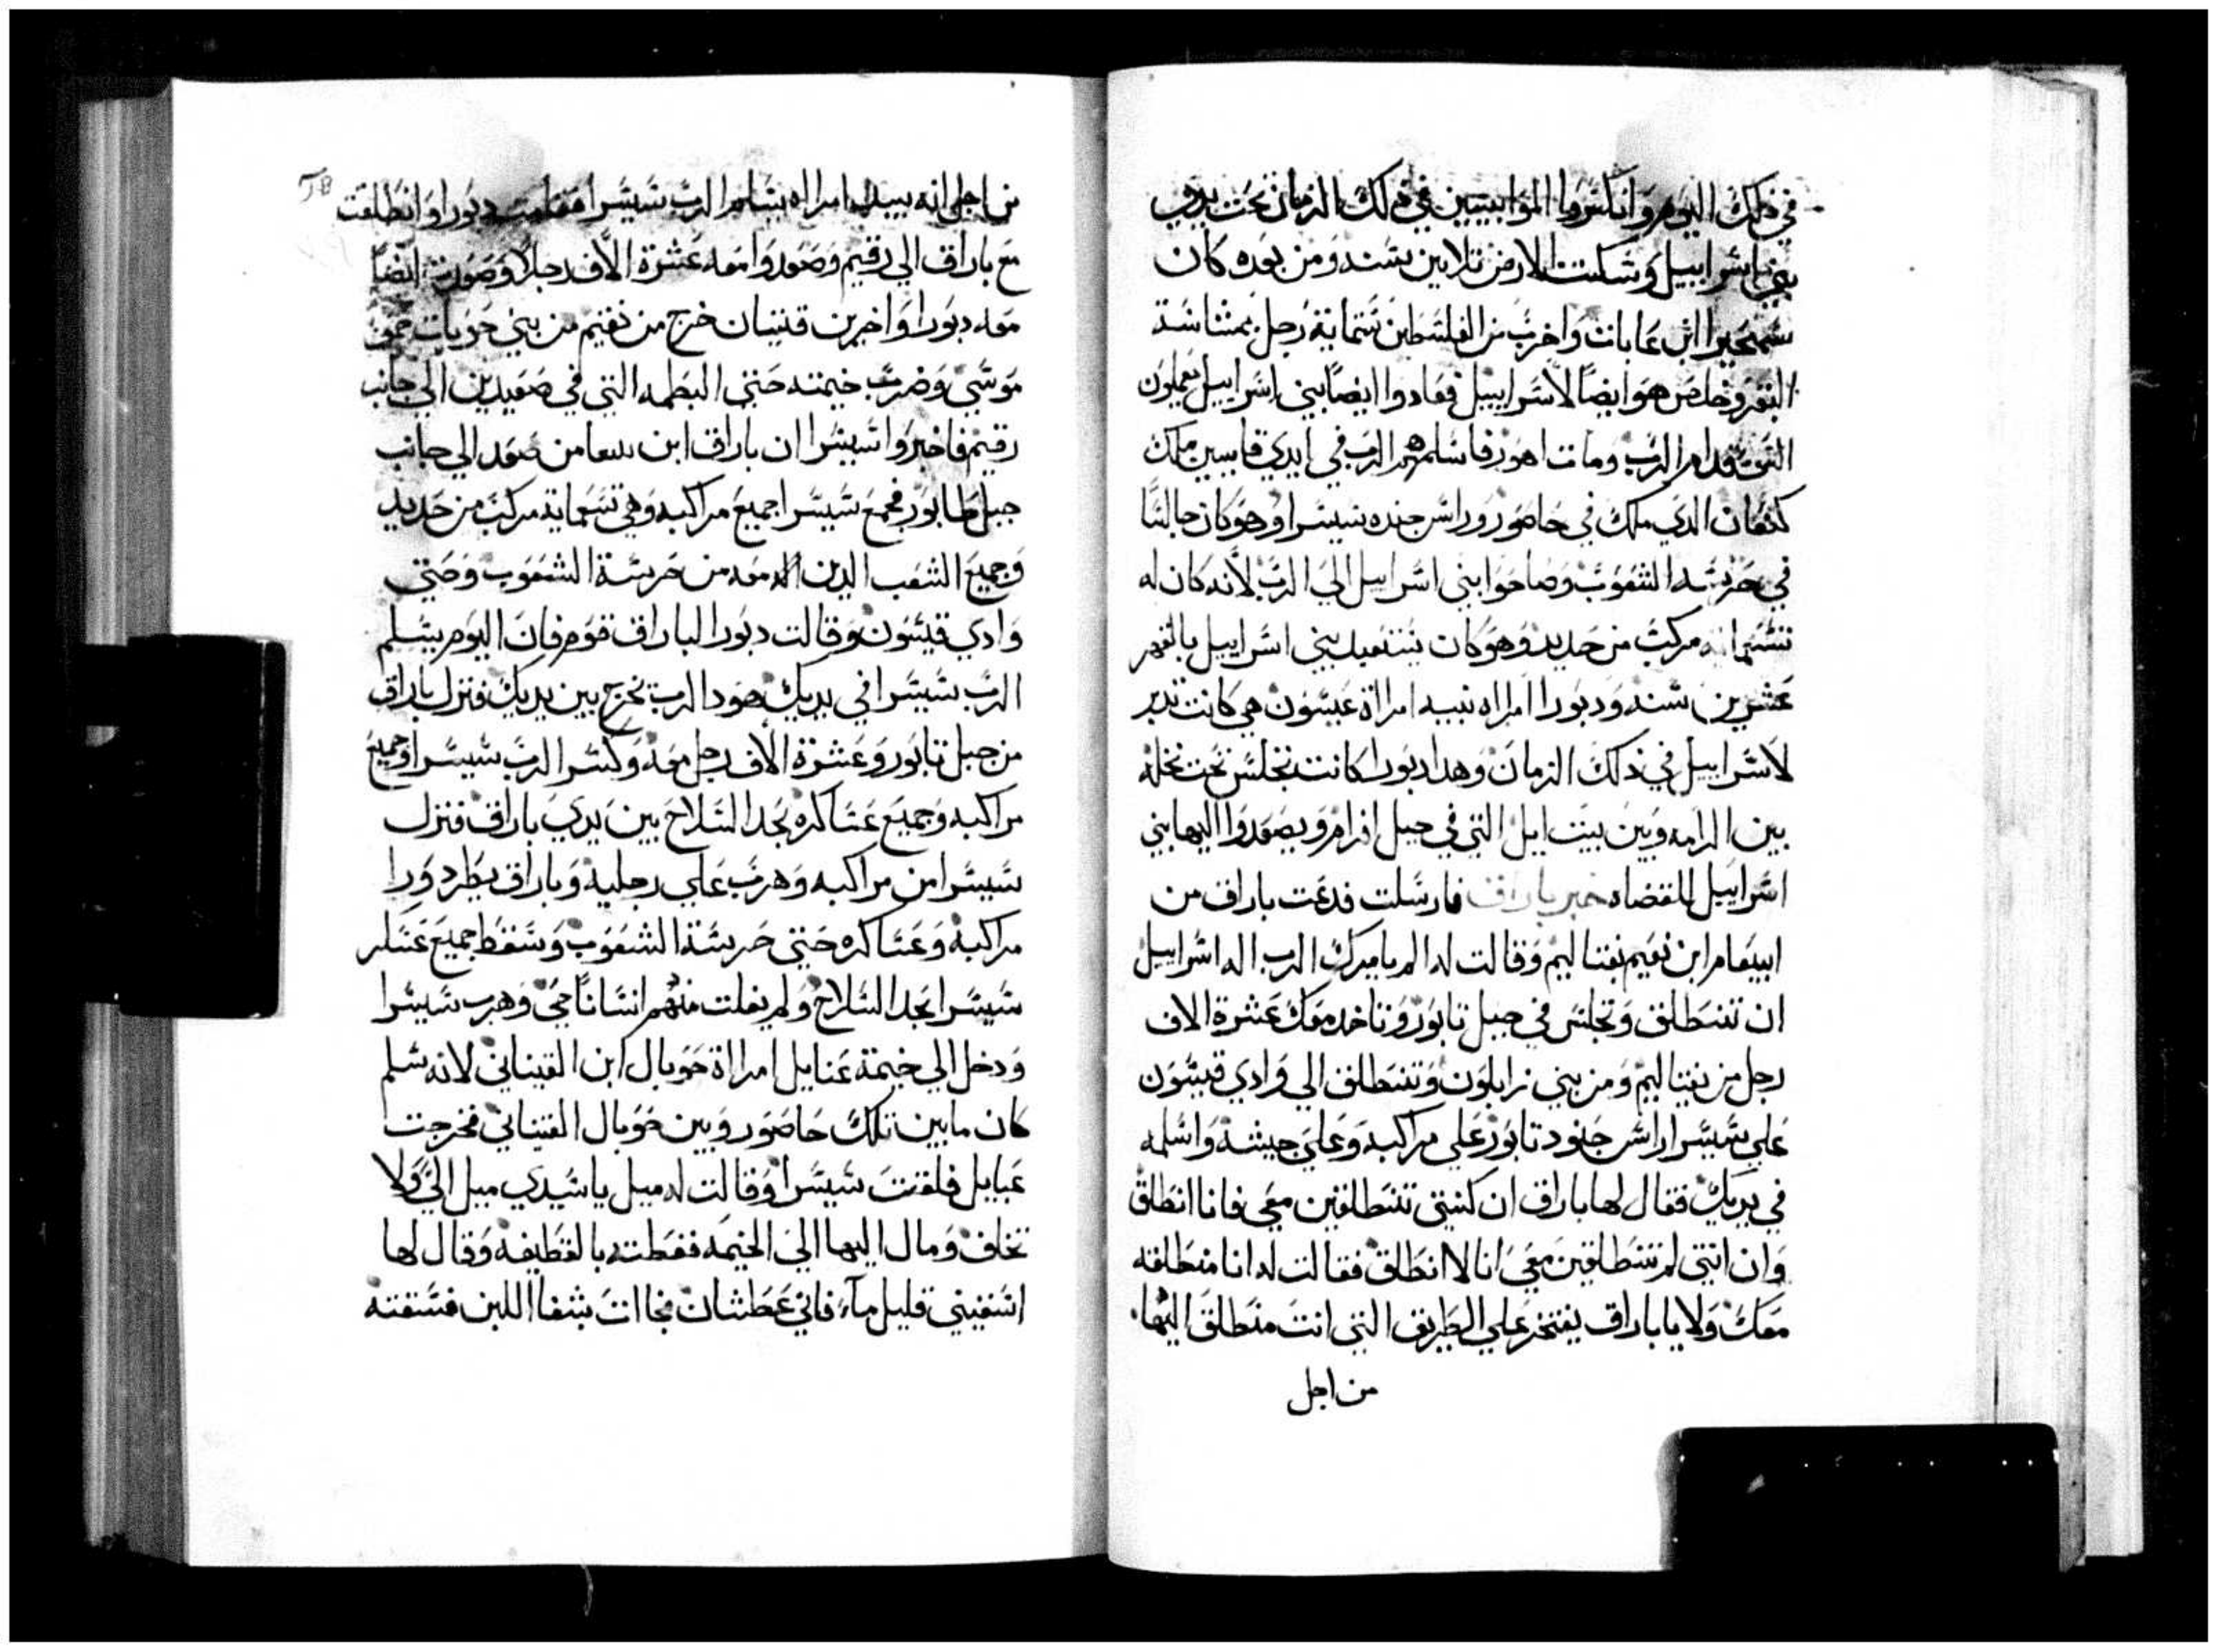 في ذلك اليوم وانكسروا الموابيين في ذلك الزمان تحت يدي
بني اسراييل وسكنت الارض تلاتين سنه ومن بعده كان
سمحيرا ابن عابات واخرب من الفلسطين ستماية رجل بمتناشة
البقر وخلص هو ايضا لاسراييل فعادوا ايضا بني اسراييل يعملون
الشر قدام الرب ومات اهور فاسلمهم الرب في ايدي قابيين ملك
كنعان الدي ملك في حاصور وراس جنده سيسرا وهو كان جالسا
في حريسه الشعوب وصاحوا بني اسراييل الي الرب لانه كان له
تسعماية مركب من حديد وهو كان يستعبد بني اسراييل بالقهر
عشرين سنه ودبورا امراه نبيه امراة عبيسون هي كانت تدبر
لاسراييل في ذلك الزمان وهدا دبورا كانت تجلس تحت نخله
بين الرامه وبين بيت ايل التي في جبل افرام ويصعدوا اليها بني
اسراييل للقضاه خبر باراق فارسلت فدعت باراق من
ابيعام ابن نعيم نفتاليم وقالت له الم يامرك الرب اله اسراييل
ان تنطلق وتجلس في جبل تابور وتاخد معك عشرة الاف
رجل من نفتاليم ومن بني زابلون وتنطلق الي وادي قيسون
علي سيسرا راس جنود تابور علي مراكبه وعلي جيشه واسلمه
في يديك فقال لها باراق ان كنتي تنطلقين معي فانا انطلق
وان انتي لم تنطلقين معي انا لا انطلق فقالت له انا منطلقه
معك ولا يا باراق يفتخر علي الطريق التي انت منطلق اليها
من اجل
من اجل انه بيد امراه يسلم الرب سيسرا فقامت دبورا وانطلقت
مع باراق الي رقيم وصعدوا معه عشرة الاف رجلا وصعدت ايضا
معه دبورا واخرين قنينان خرج من نعيم من بني حوبات حمي
موسي وضرب خيمته حتي البطمه التي في صعيدين الي جانب
رقيم فاخبروا سيسرا ان باراق ابن سعامن صعد الي جانب
جبل طابور فجمع سيسرا جميع مراكبه وهي تسعماية مركب من حديد
وجميع الشعب الدين معه من حريسة الشعوب وحتي
وادي قيسون وقالت دبورا لباراق قوم فان اليوم يسلم
الرب سيسرا في يديك هودا الرب يخرج بين يديك فنزل باراق
من جبل تابور وعشرة الاف رجل معه وكسر الرب سيسرا وجميع
مراكبه وجميع عساكره بحد السلاح بين يدي باراق فنزل
سيسرا من مراكبه وهرب علي رجليه وباراق يطرد ورا
مراكبه وعساكره حتي حريسة الشعوب وسقط جميع عسكر
سيسرا بحد السلاح ولم يفلت منهم انسانا حي وهرب سيسرا
ودخل الي خيمة عنايل امراة حوبال ابن القيناني لانه سلم
كان ما بين تلك حاصور وبين حوبال القيناني فخرجت
عبايل فلقت سيسرا وقالت له ميل يا سيدي ميل الي ولا
تخاف ومال اليها الي الخيمه فغطته بالقطيفه وقال لها
اسقيني قليل ماء فاني عطشان فجاات بشفا اللبن فسقته